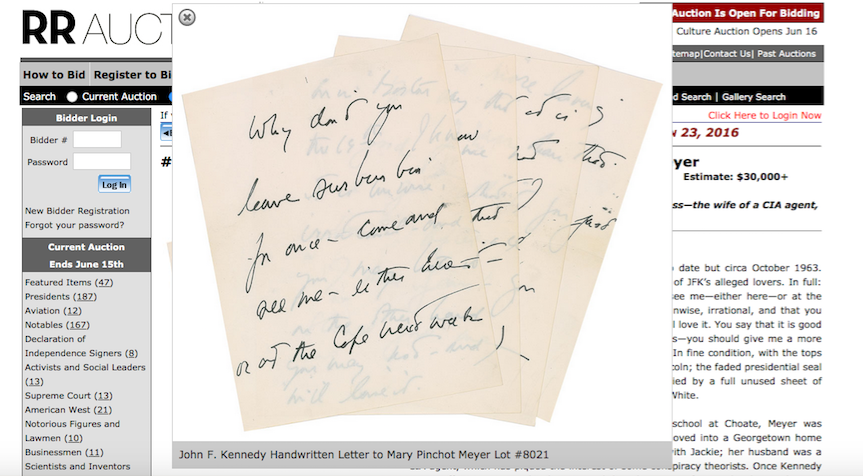 RR AUCT
Auction Is Open For Bidding
Culture Auction Opens Jun 16
temap|Contact Us| Past Auctions
How to Bid Register to Bi
Search Current Auction
d Search | Gallery Search
Bidder Login
Bidder #
Password
Log In
New Bidder Registration
Forgot your password?
Current Auction
Ends June 15th
Featured Items (47)
Presidents (187)
Aviation (12)
Notables (167)
Declaration of
Independence Signers (8)
Activists and Social Leaders
(13)
Supreme Court (13)
American West (21)
Notorious Figures and
Lawmen (10)
Businessmen (11)
Scientists and Inventors
If
#
Why don't you
leave suburbia
for once - come and
see me - either here -
or at the Cape next week
John F. Kennedy Handwritten Letter to Mary Pinchot Meyer Lot #8021
Click Here to Login Now
23, 2016
yer
Estimate: $30,000+
ss—the wife of a CIA agent,
date but circa October 1963.
of JFK's alleged lovers. In full:
ee me—either here—or at the
nwise, irrational, and that you
I love it. You say that it is good
s—you should give me a more
In fine condition, with the tops
coln; the faded presidential seal
ied by a full unused sheet of
White.
school at Choate, Meyer was
oved into a Georgetown home
ith Jackie; her husband was a
spiracy theorists. Once Kennedy